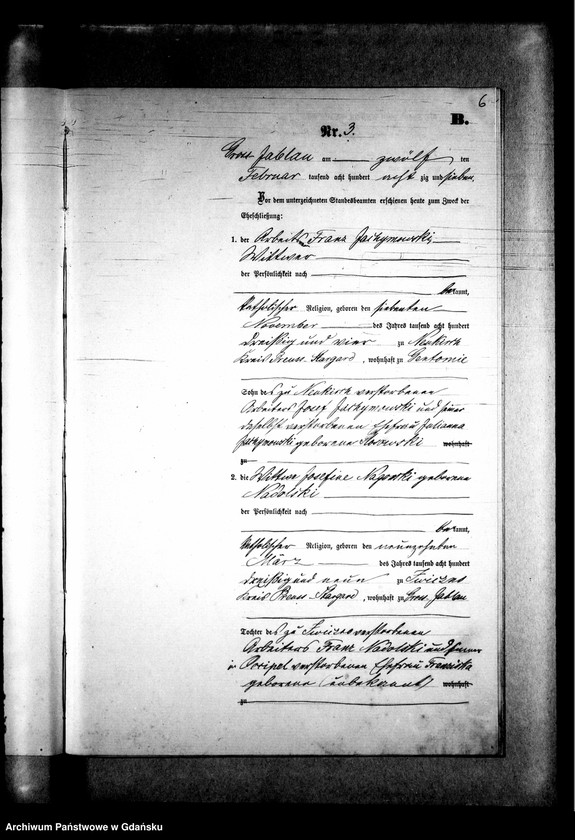 6
B.
Nr. 3.
Gross Jablau am zwölf ten
Februar tausend acht hundert acht zig und sieben.
Vor dem unterzeichneten Standesbeamten erschienen heute zum Zweck der
Eheschließung:
1. der Arbeiter Franz Jachymowski
Wittwer
der Persönlichkeit nach
bekannt,
katholischer Religion, geboren den siebenten
November des Jahres tausend acht hundert
dreißig und vier zu Neukirch
Kreis Preuss. Stargard, wohnhaft zu Gentomie
Sohn des zu Neukirch verstorbenen
Arbeiters Josef Jachymowski und seiner
daselbst verstorbenen Ehefrau Julianna
Jachymowski geborene wohnhaft
zu
2. die Wittwe Josefine geborene
Nadolski
der Persönlichkeit nach
bekannt,
katholischer Religion, geboren den neunzehnten
März des Jahres tausend acht hundert
dreißig und neun zu
Kreis Preuss. Stargard, wohnhaft zu Gross Jablau
Tochter des zu verstorbenen
Arbeiters Franz Nadolski und seiner
in Ossipel verstorbenen Ehefrau Franziska
geborene (unbekannt) wohnhaft
zu
Archiwum Państwowe w Gdańsku